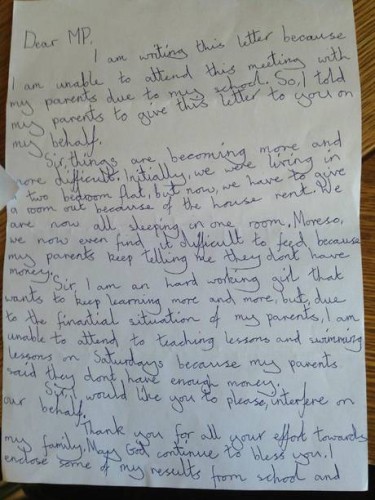 Dear MP,
I am writing this letter because
I am unable to attend this meeting with
my parents due to my school. So, I told
my parents to give this letter to you on
my behalf.
Sir, things are becoming more and
more difficult. Initially, we were living in
a two bedroom flat, but now, we have to give
a room out because of the house rent. We
are now all sleeping in one room. Moreso,
we now even find it difficult to feed because
my parents keep telling me they dont have
money.
Sir, I am an hard working girl that
wants to keep learning more and more, but, due
to the finantial situation of my parents, I am
unable to attend to teaching lessons and swimming
lessons on Saturdays because my parents
said they dont have enough money.
Sir, I would like you to please, interfere on
our behalf.
Thank you for all your effort towards
my family. May God continue to bless you. I
enclose some of my results from school and